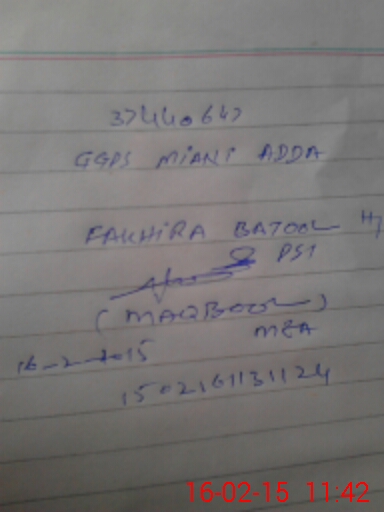 37440647
GGPS MIANI ADDA
FAKHIRA BATOOL
PST
(MAQBOOL)
MEA
16-2-2015
1502161131124
16-02-15 11:42